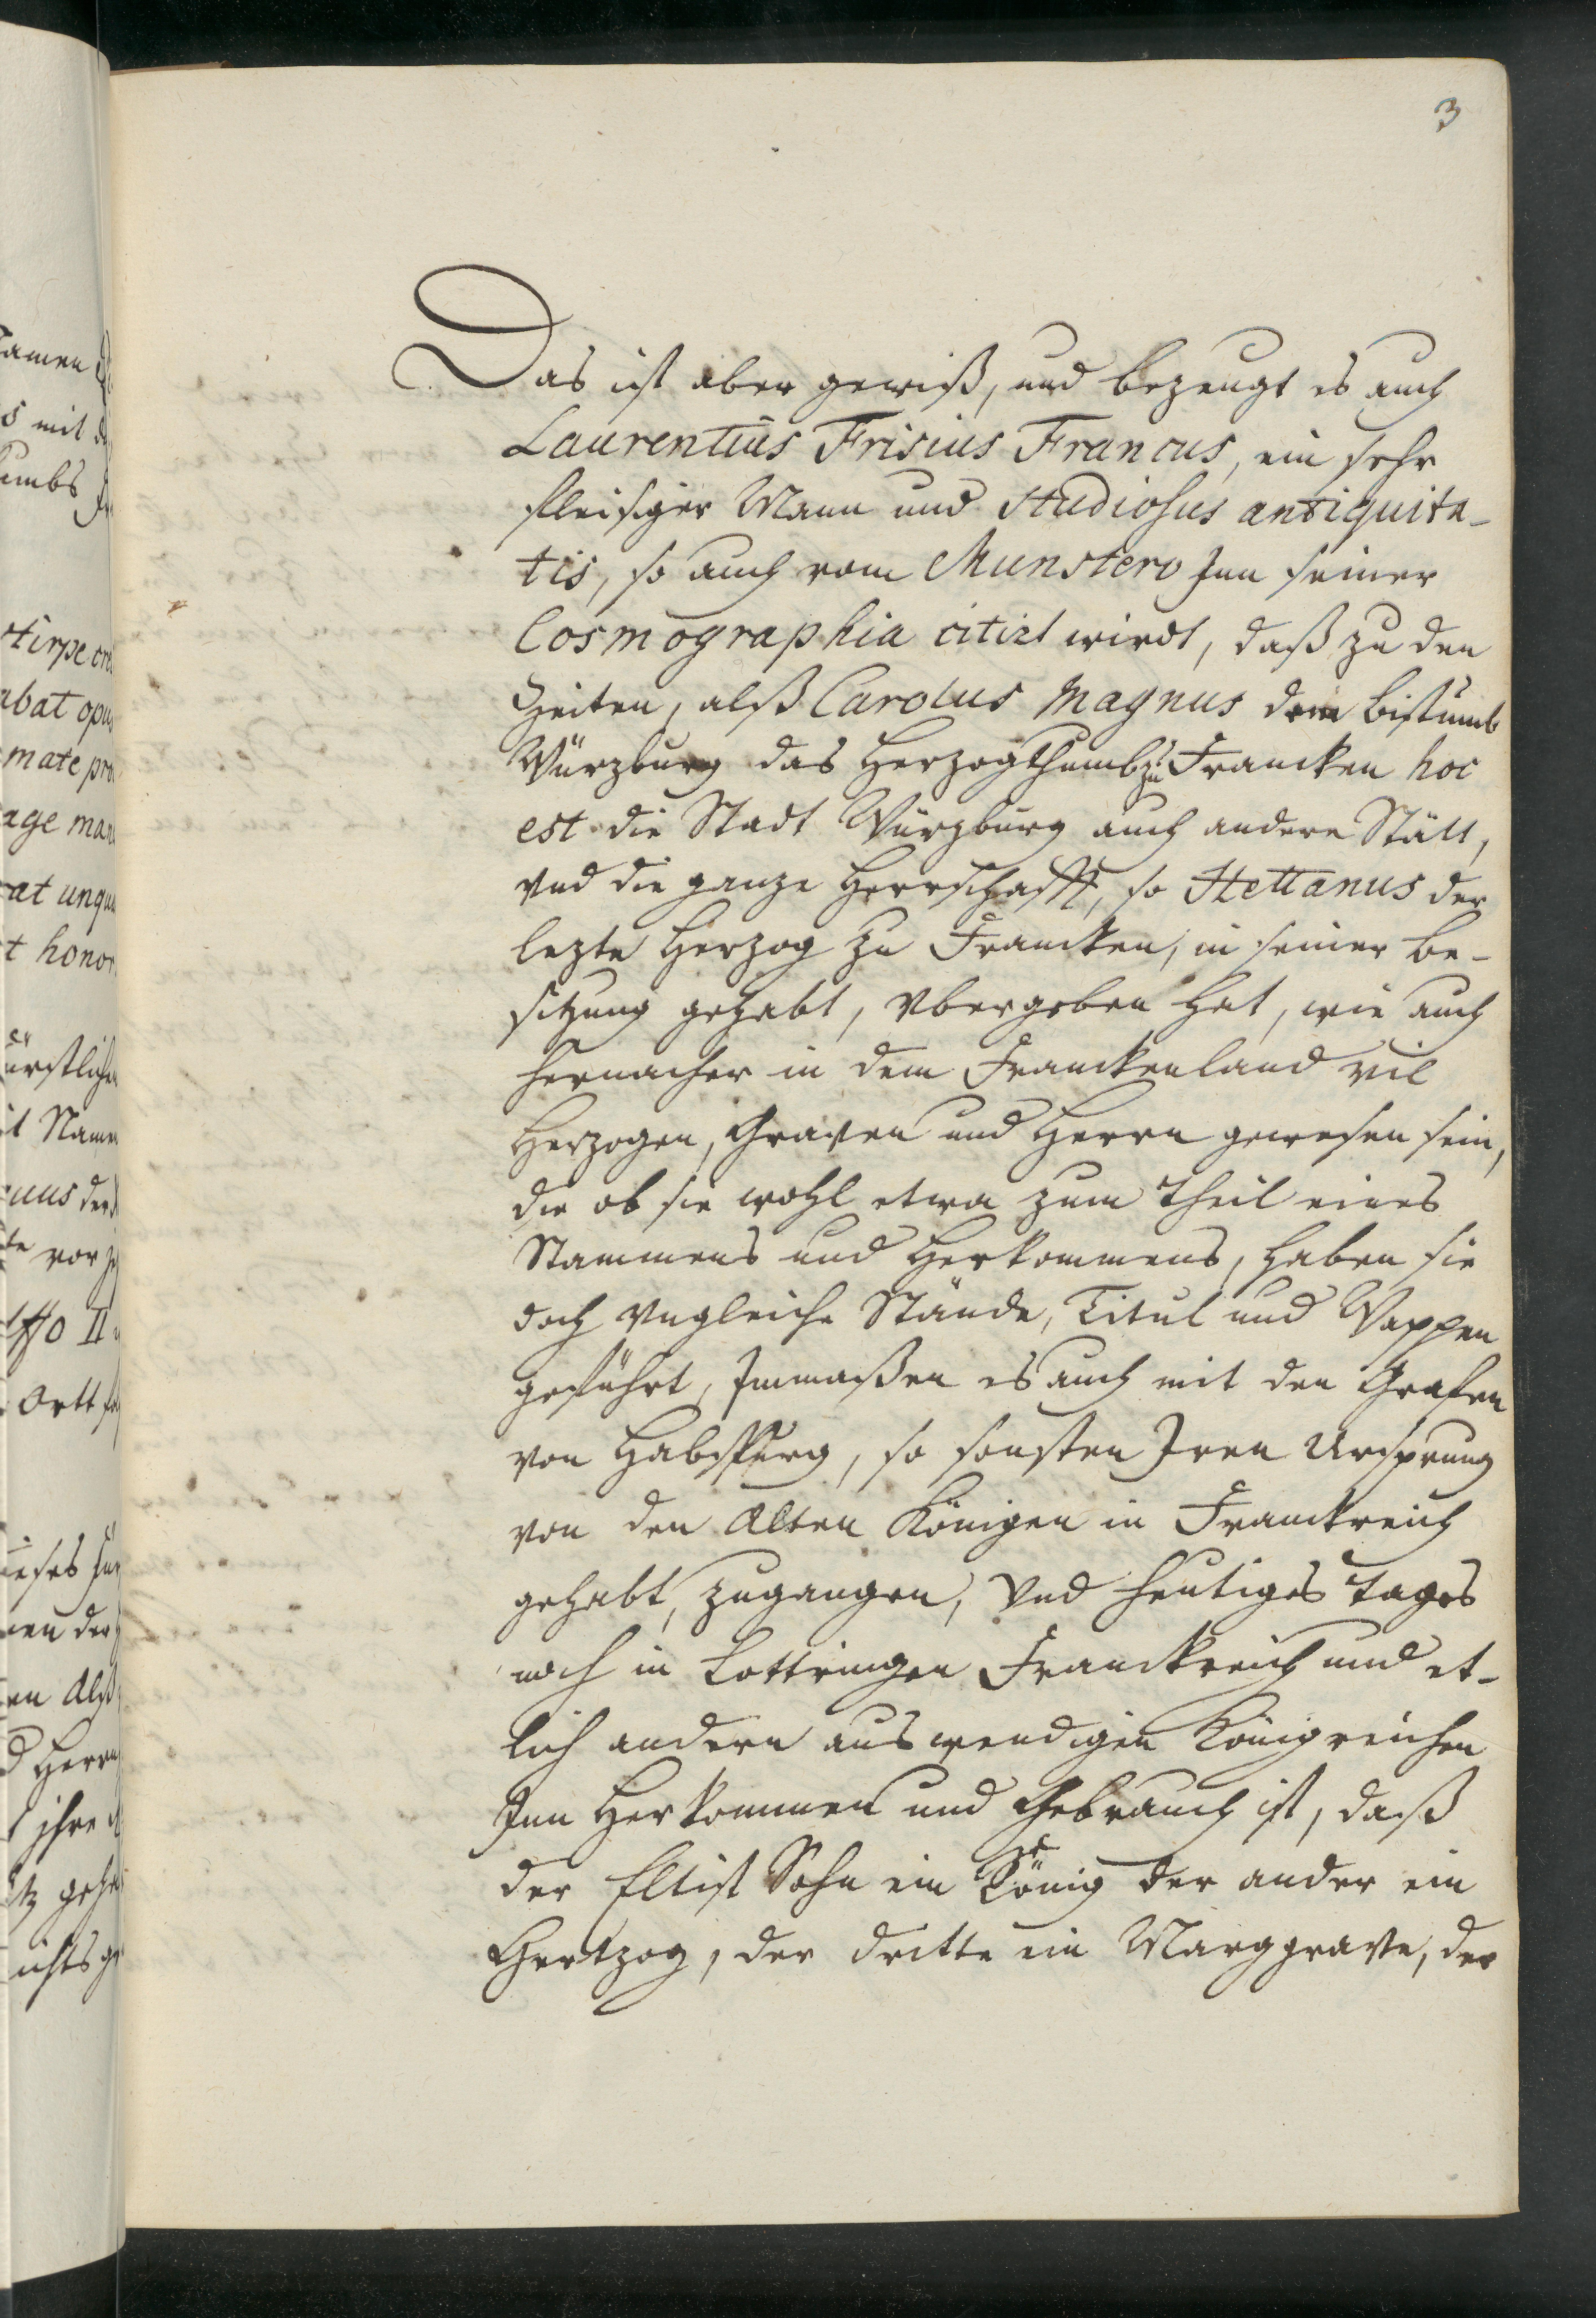 3
Das ist aber gewiß, und bezeugt es auch
Laurentius Frisius Francus, ein sehr
fleisiger Mann und Studiosus antiquita-
tis, so auch vom Munstero Inn seiner
Cosmographia citirt wirdt, daß zu den
Zeiten, alß Carolus Magnus dem Bistumb
Würzburg das Herzogthumb zu Francken hoc
est die Stadt Würzburg auch andere Stätt,
vnd die ganze Herrschafft, so Hettanus der
lezte Herzog zu Francken, in seiner Be-
sitzung gehabt, vbergeben hat, wie auch
hernacher in dem Franckenland vil
Herzogen, Graven und Herrn gewesen sein,
die ob sie wohl etwa zum Theil eines
Stammens und Herkommens, haben sie
doch vngleiche Stände, Titul und Wappen
geführt, Inmaßen es auch mit den Grafen
von Habspurg, so sonsten Iren Ursprung
von den Alten Königen in Franckreich
gehabt, zugangen, Vnd heutiges Tages
noch in Lottringen Franckreich und et-
lich andern auswendigen Königreichen
Inn Herkommen und Gebrauch ist, daß
der Eltist Sohn ein König der ander ein
Hertzog, der dritte ein Marggrave, der